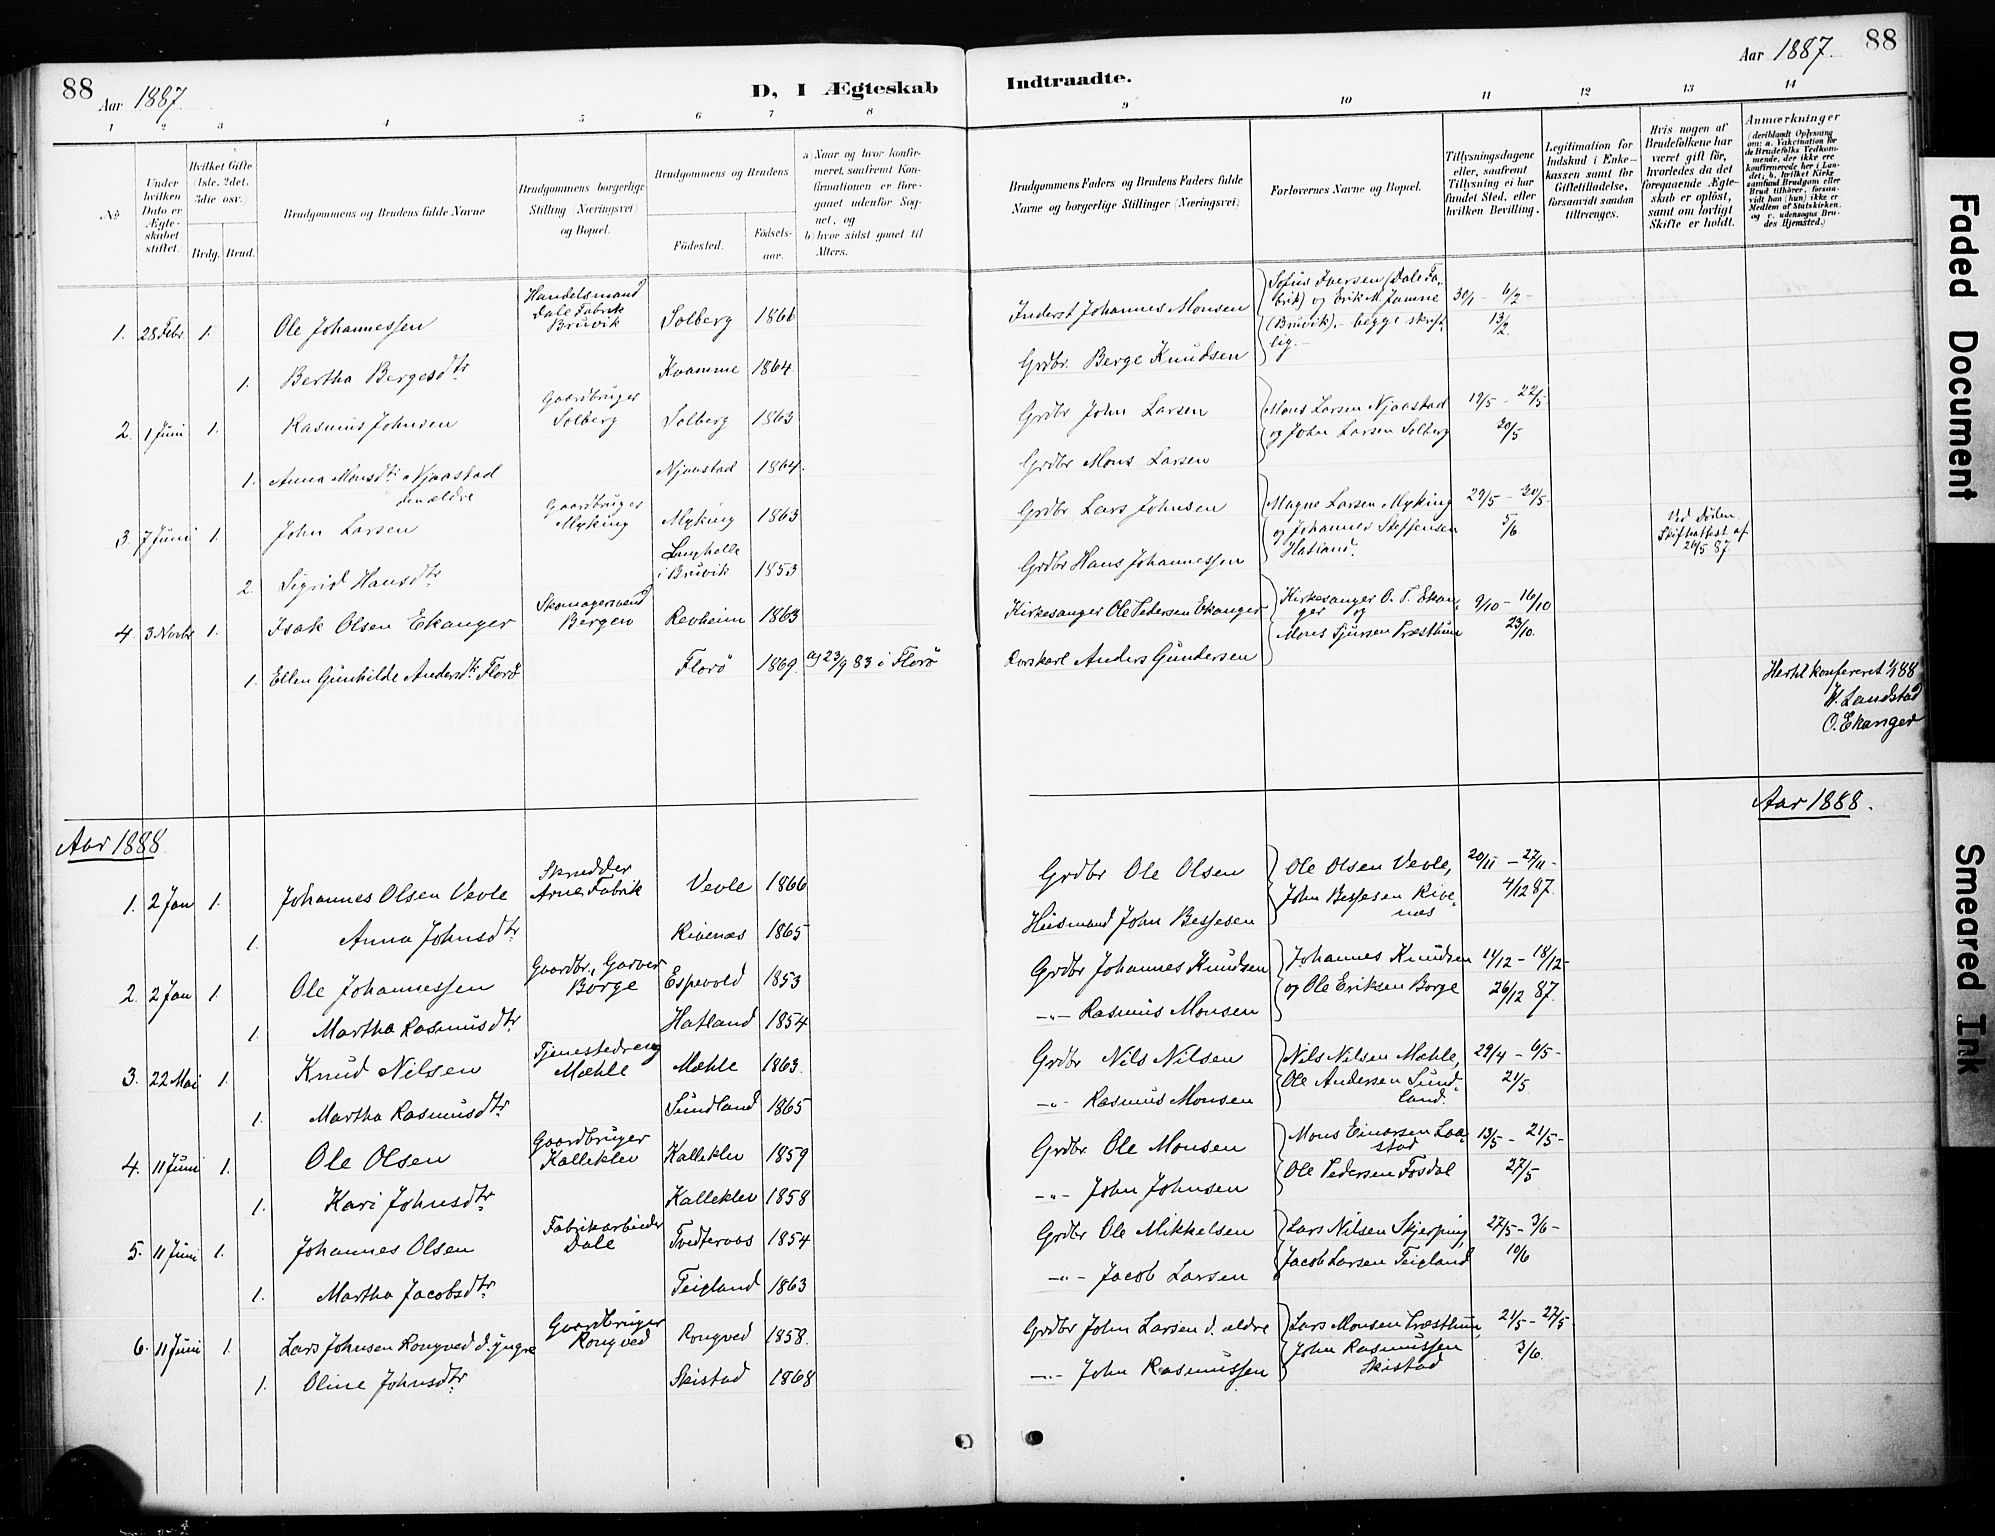 88
Aar 1887.
D, I Ægteskab
Indtraadte.
Aar 1887.
88
1 2 3 4 5 6 7 8 9 10 11 12 13 14
No
Under hvilken Dato er Ægteskabet stiftet.
Hvilket Gifte (1ste, 2det, 3die osv.)
Brdg. Brud.
Brudgommens og Brudens fulde Navne
Brudgommens borgerlige Stilling (Næringsvei) og Bopæl.
Brudgommens og Brudens
Födested.
Födselsaar.
a) Naar og hvor konfirmeret, saafremt Konfirmationen er foregaaet udenfor Sognet, og
b) hvor sidst gaaet til Alters.
Brudgommens Faders og Brudens Faders fulde Navne og borgerlige Stillinger (Næringsvei)
Forlovernes Navne og Bopæl.
Tillysningsdagene eller, saafremt Tillysning ei har fundet Sted, efter hvilken Bevilling.
Legitimation for Indskud i Enkekassen samt for Giftetilladelse, forsaavidt saadan tiltrænges.
Hvis nogen af Brudefolkene har været gift för, hvorledes da det foregaaende Ægteskab er oplöst, samt om lovligt Skifte er holdt.
Anmærkninger
(deriblandt Oplysning om: a. Vakcination for de Brudefolks Vedkommende, der ikke ere konfirmerede her i Landet, b. hvilket Kirkesamfund Brudgom eller Brud tilhörer, forsaavidt han (hun) ikke er Medlem af Statskirken, og c. udensogns Brudes Hjemsted.)
1. 28 Febr. 1. Ole Johannessen Handelsmand Dale Fabrik Bruvik Solberg 1866 Inderst Johannes Monsen Sofus Iversen (Dale Fabrik) og Erik M. Jamne (Bruvik), - begge skriftlig. - 30/1 - 6/2 - 13/2.
1. Bertha Bergesdtr Kvamme 1864 Grdbr. Berge Knudsen
2. 1 Juni 1. Rasmus Johnsen Gaardbruger Solberg Solberg 1863 Grdbr John Larsen Mons Larsen Njaastad og John Larsen Solberg 19/5 - 22/5 30/5
1. Anna Monsdtr Njaastad den ældre Njaastad 1864. Grdbr Mons Larsen
3. 7 Juni 1. John Larsen Gaardbruger Myking Myking 1863 Grdbr Lars Johnsen Magne Larsen Myking og Johannes Steffensen Hatland. 29/5 - 30/5 5/6 Ved Döden. Skifteattest af 26/5 87.
2. Sigrid Hansdtr i Bruvik 1853 Grdbr Hans Johannessen
4. 3 Novbr 1. Isak Olsen Ekanger Skomagersvend Bergen Revheim 1863 Kirkesanger Ole Pedersen Ekanger Kirkesanger O. P. Ekanger og Mons Sjursen Træsthun 9/10 - 16/10 23/10.
1. Ellen Gunhilde Andersdtr Florö Florö 1869. a) 23/9 83 i Florö Anders Gundersen
Hertil konfereret 88
W. Landstad
O. Ekanger
Aar 1888 Aar 1888.
1. 2 Jan 1. Johannes Olsen Vevle Skrædder Arne Fabrik Vevle 1866 Grdbr Ole Olsen Ole Olsen Vevle, John Bessesen Rivenæs 20/11 - 27/11 - 4/12 87.
1. Anna Johnsdtr Rivenæs 1865 Husmand John Bessesen
2. 2 Jan 1. Ole Johannessen Gaardbr., Garver Borge Espevold 1853 Grdbr Johannes Knudsen Johannes Knudsen og Ole Eriksen Borge 11/12 - 18/12 - 26/12 87.
1. Martha Rasmusdtr Hatland 1854 -"- Rasmus Monsen
3. 22 Mai 1. Knud Nilsen Tjenestedreng Mæhle Mæhle 1863. Grdbr Nils Nilsen Nils Nilsen Mæhle, Ole Andersen Sundland. 29/4 - 6/5 - 21/5
1. Martha Rasmusdtr Sundland 1865 -"- Rasmus Monsen
4. 11 Juni 1. Ole Olsen Gaardbruger Kalleklev Kalleklev 1859 Grdbr. Ole Monsen Mons Einarsen Laastad Ole Pedersen Fosdal 13/5 - 21/5 - 27/5
1. Kari Johnsdtr Kalleklev 1858 -"- John Johnsen
5. 11 Juni 1. Johannes Olsen Fabrikarbeider Dale Tvedteraas 1854 Grdbr Ole Mikkelsen Lars Nilsen Skjerping, Jacob Larsen Teigland 27/5 - 3/6 - 10/6
1. Martha Jacobsdtr Teigland 1863 -"- Jacob Larsen
6. 11 Juni 1. Lars Johnsen Rongved d. yngre Gaardbruger Rongved Rongved 1858. Grdbr John Larsen d. ældre Lars Monsen Træsthun, John Rasmussen Skistad 21/5 - 27/5 3/6.
1. Oline Johnsdtr Skistad 1868 -"- John Rasmussen
Faded Document
Smeared Ink